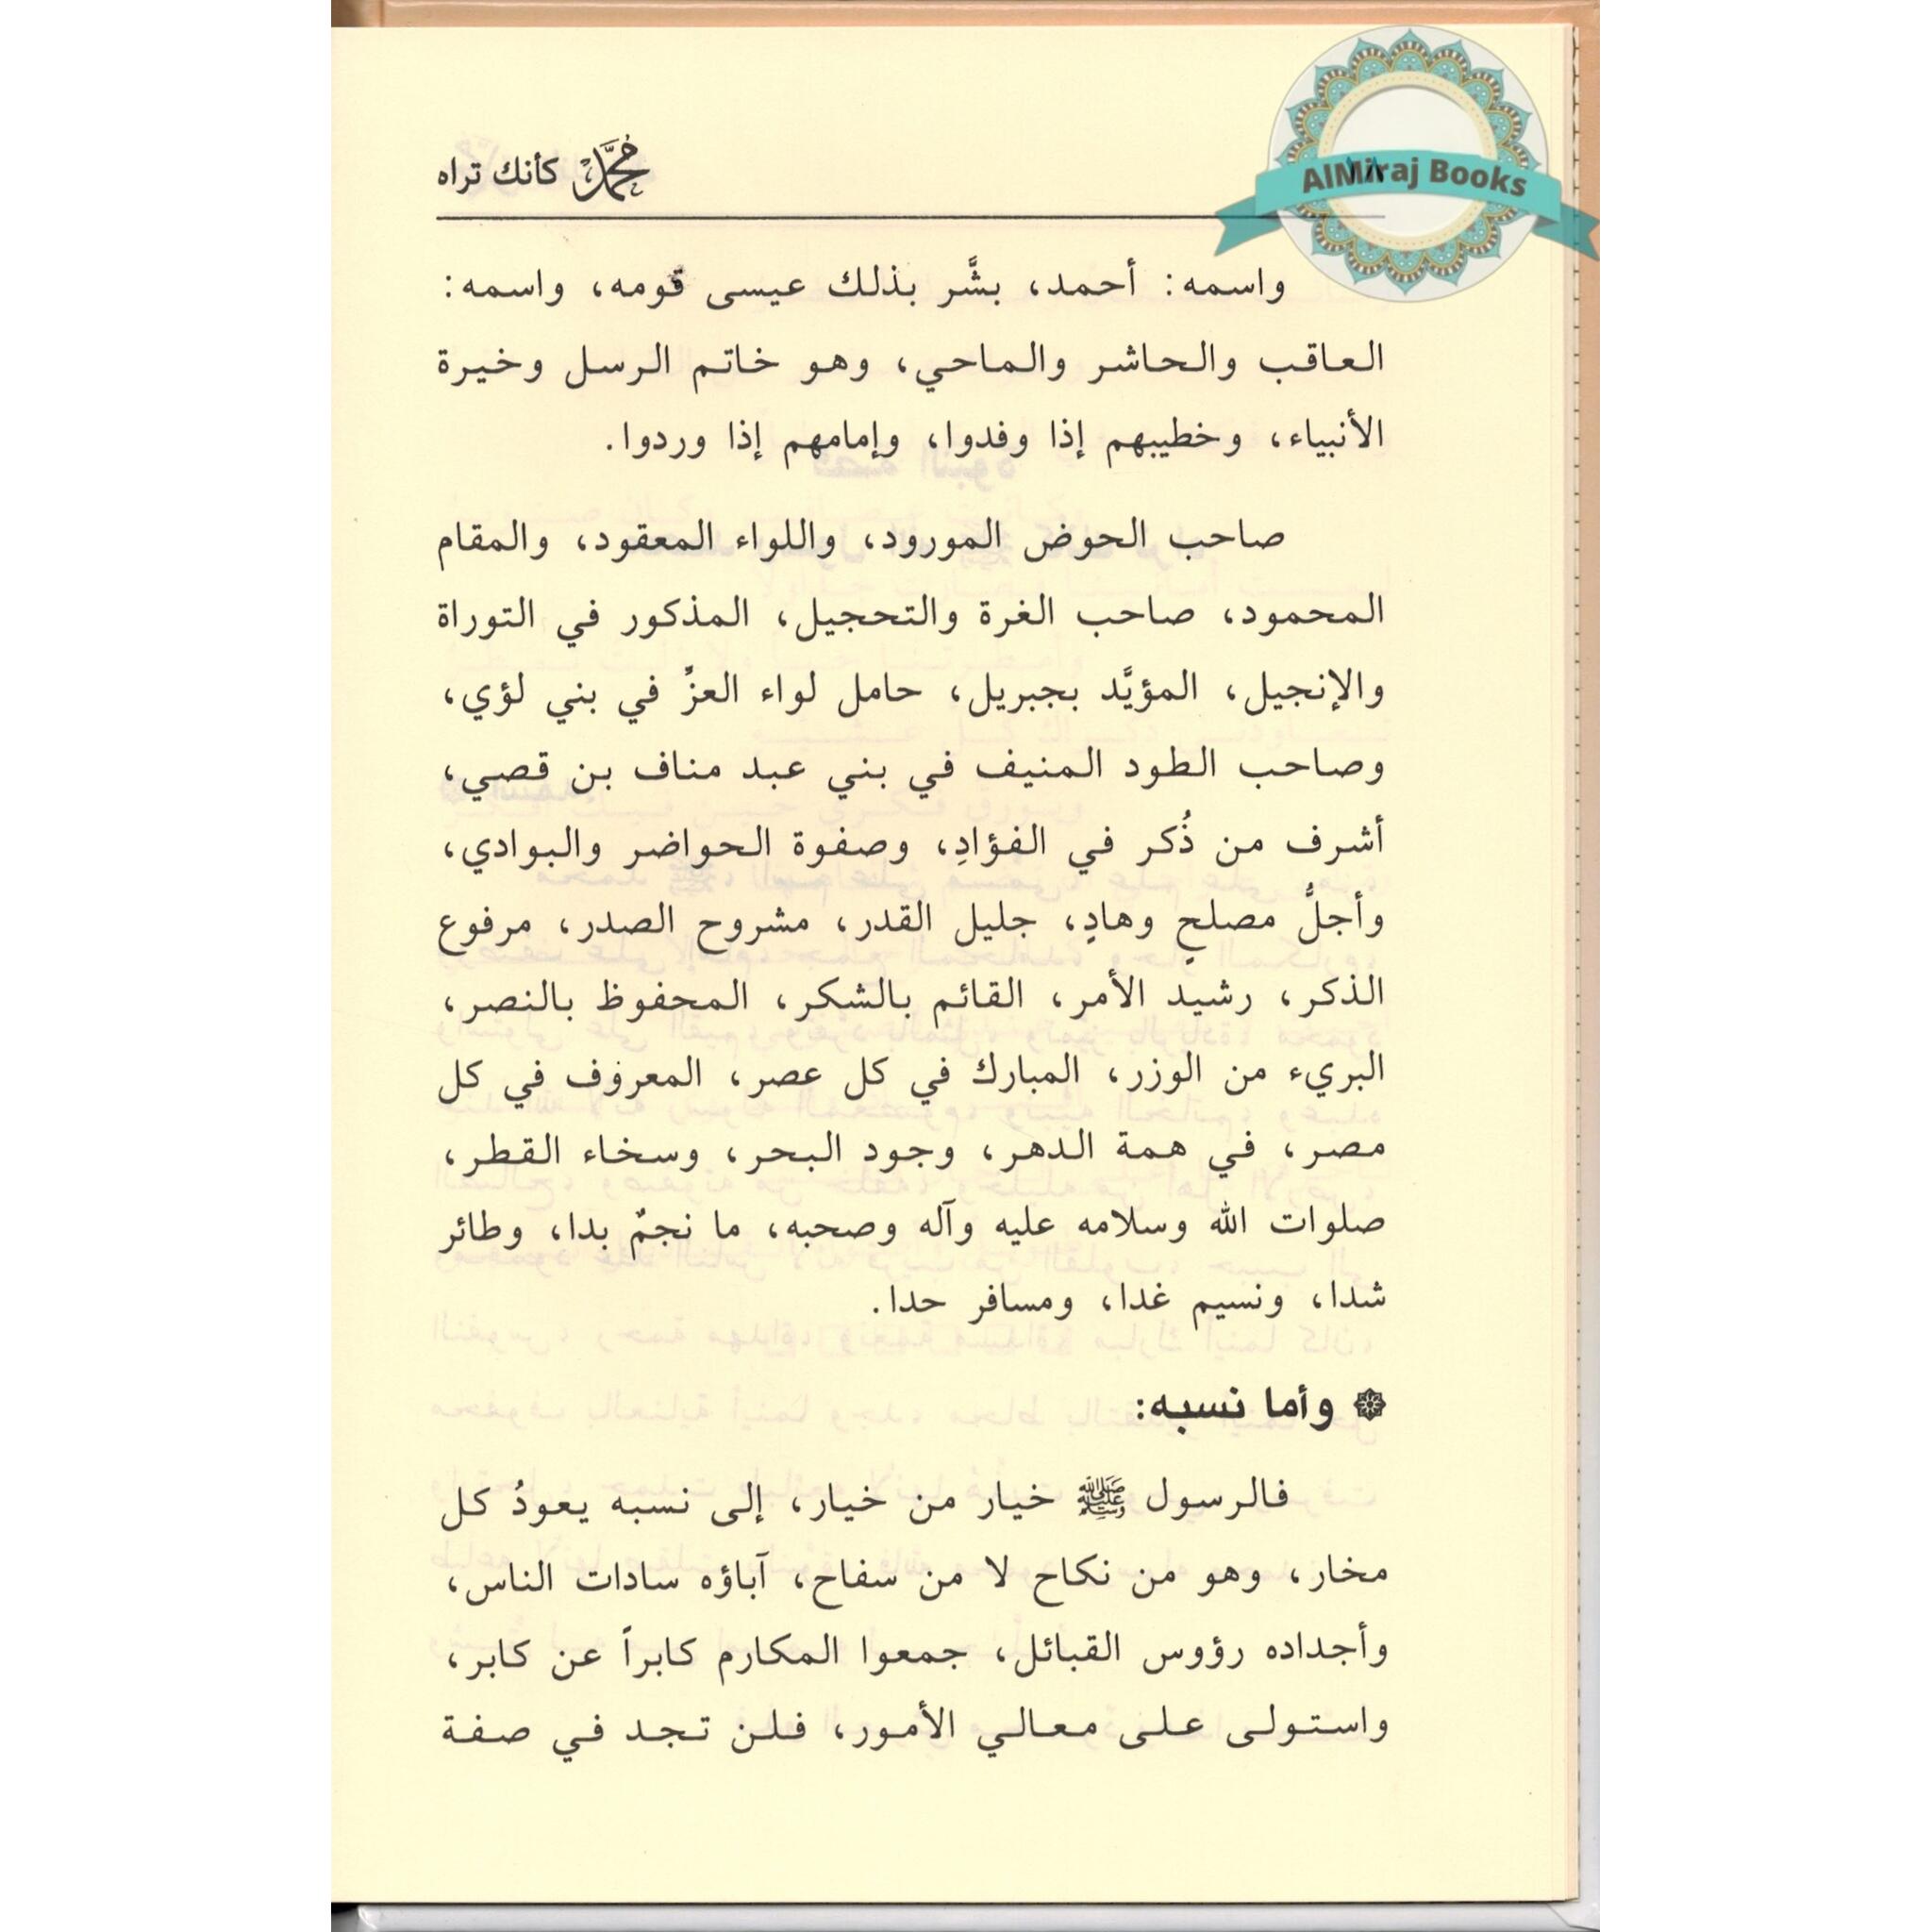 محمد كأنك تراه
AlMiraj Books
واسمه: أحمد، بشَّر بذلك عيسى قومه، واسمه:
العاقب والحاشر والماحي، وهو خاتم الرسل وخيرة
الأنبياء، وخطيبهم إذا وفدوا، وإمامهم إذا وردوا.
صاحب الحوض المورود، واللواء المعقود، والمقام
المحمود، صاحب الغرة والتحجيل، المذكور في التوراة
والإنجيل، المؤيَّد بجبريل، حامل لواء العزِّ في بني لؤي،
وصاحب الطود المنيف في بني عبد مناف بن قصي،
أشرف من ذُكر في الفؤادِ، وصفوة الحواضر والبوادي،
وأجلُّ مصلحٍ وهادٍ، جليل القدر، مشروح الصدر، مرفوع
الذكر، رشيد الأمر، القائم بالشكر، المحفوظ بالنصر،
البريء من الوزر، المبارك في كل عصر، المعروف في كل
مصر، في همة الدهر، وجود البحر، وسخاء القطر،
صلوات الله وسلامه عليه وآله وصحبه، ما نجمٌ بدا، وطائر
شدا، ونسيم غدا، ومسافر حدا.
وأما نسبه:
فالرسول ﷺ خيار من خيار، إلى نسبه يعودُ كل
مخار، وهو من نكاح لا من سفاح، آباؤه سادات الناس،
وأجداده رؤوس القبائل، جمعوا المكارم كابراً عن كابر،
واستولى على معالي الأمور، فلن تجد في صفة